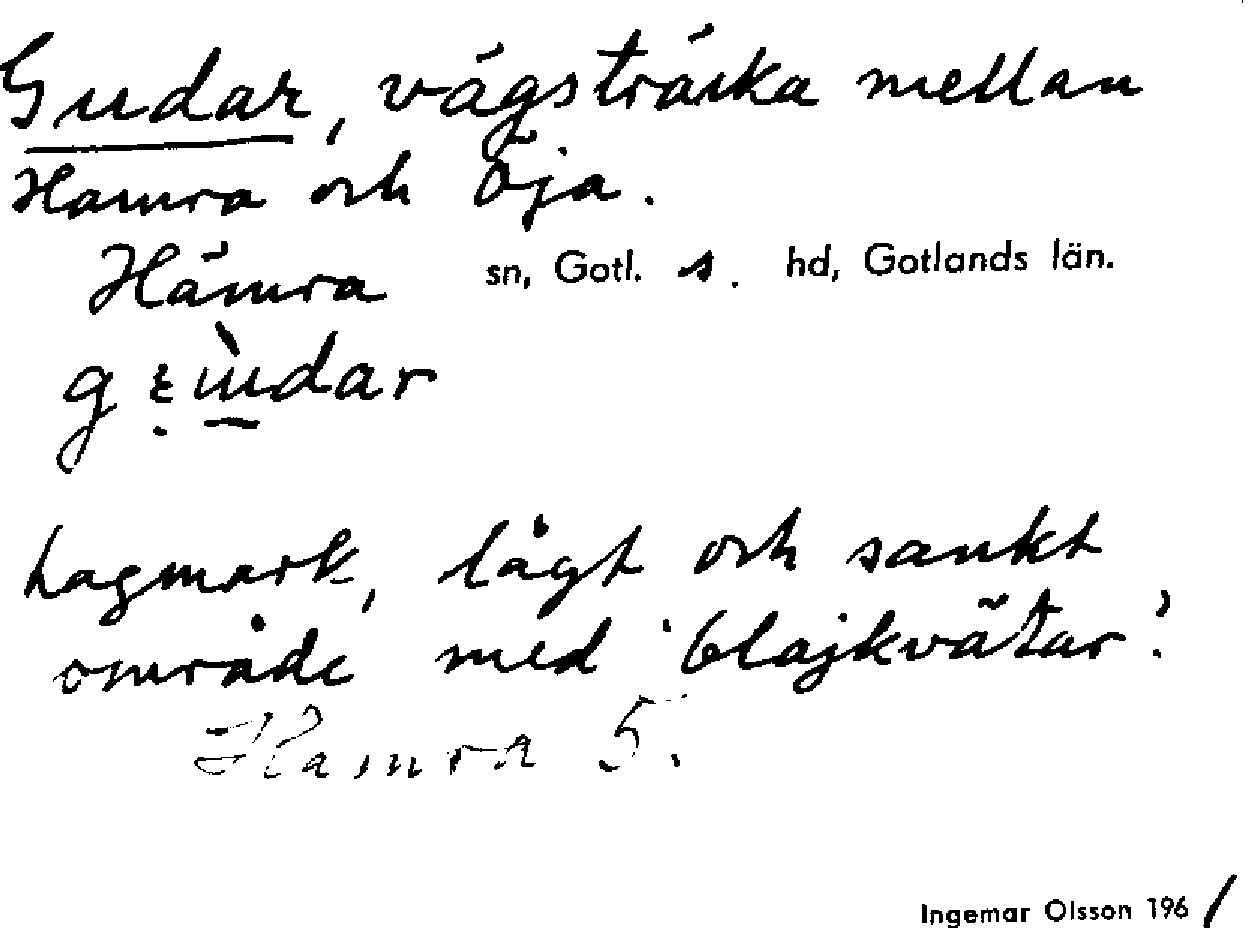 Gudar, vägsträcka mellan
Hamra och Öja.
Hamra sn, Gotl. s. hd, Gotlands län.
hagmark, lågt och sankt
område med 'blajkvätar'.
Hamra 5.
Ingemar Olsson 1961